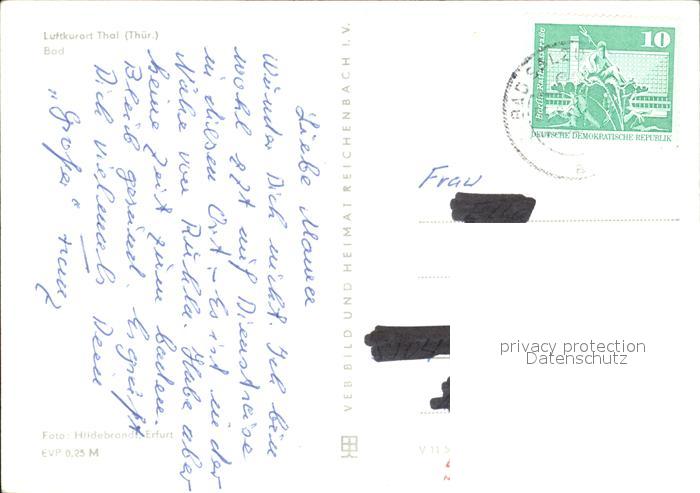 Luftkurort Thal (Thür.)
Bad
Liebe Mama
Wunder Dich nicht. Ich bin
wohl zzt auf Dienstreise
in diesen Ort. - Es ist in der
Nähe von Ruhla. Habe aber
keine Zeit zum baden.
Bleib gesund. Es grüßt
Dich vielmals Dein
"Großer"
Foto: Hildebrandt, Erfurt
EVP 0,25 M
VEB BILD UND HEIMAT REICHENBACH I. V.
BAD
10
Berlin Rathausstraße
DEUTSCHE DEMOKRATISCHE REPUBLIK
Frau
privacy protection
Datenschutz
V 11